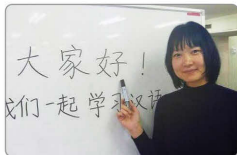 大家好！
我们一起学习汉语